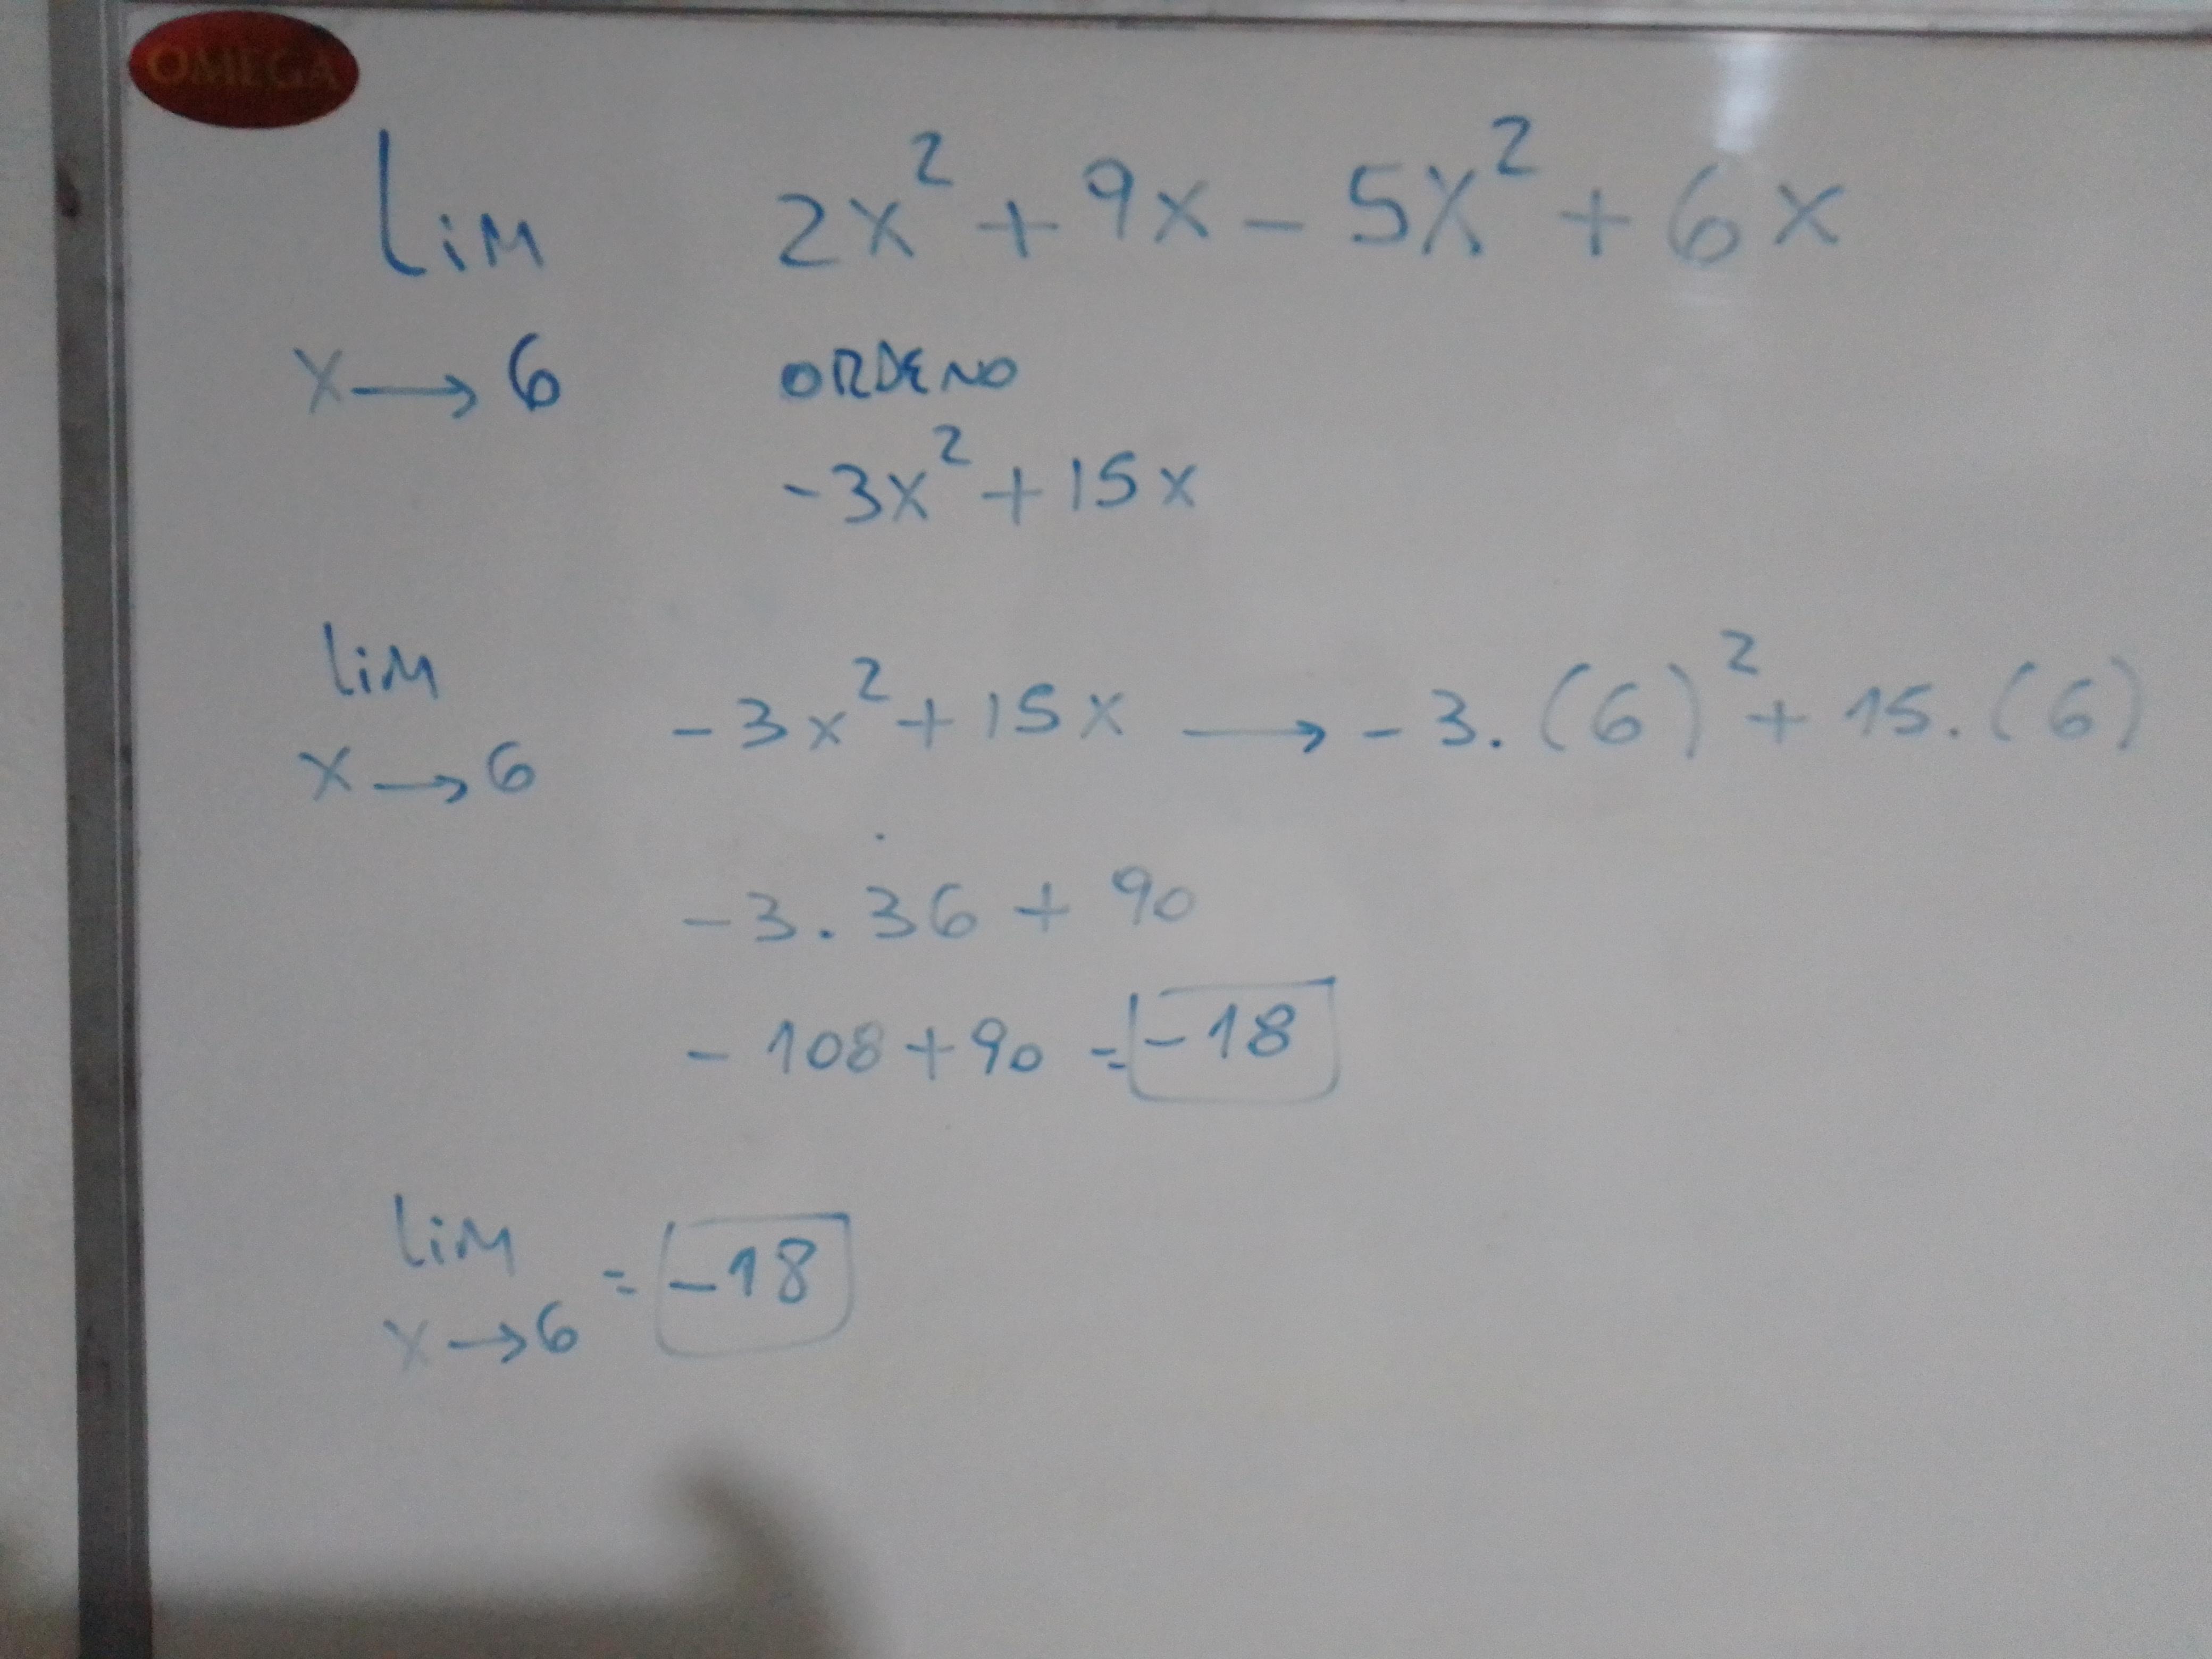 OMEGA
Lim 2x² + 9x - 5x² + 6x
x → 6 ORDENO
-3x² + 15x
lim
x → 6 -3x² + 15x → -3. (6)² + 15. (6)
-3. 36 + 90
- 108 + 90 = -18
lim
x → 6 = -18